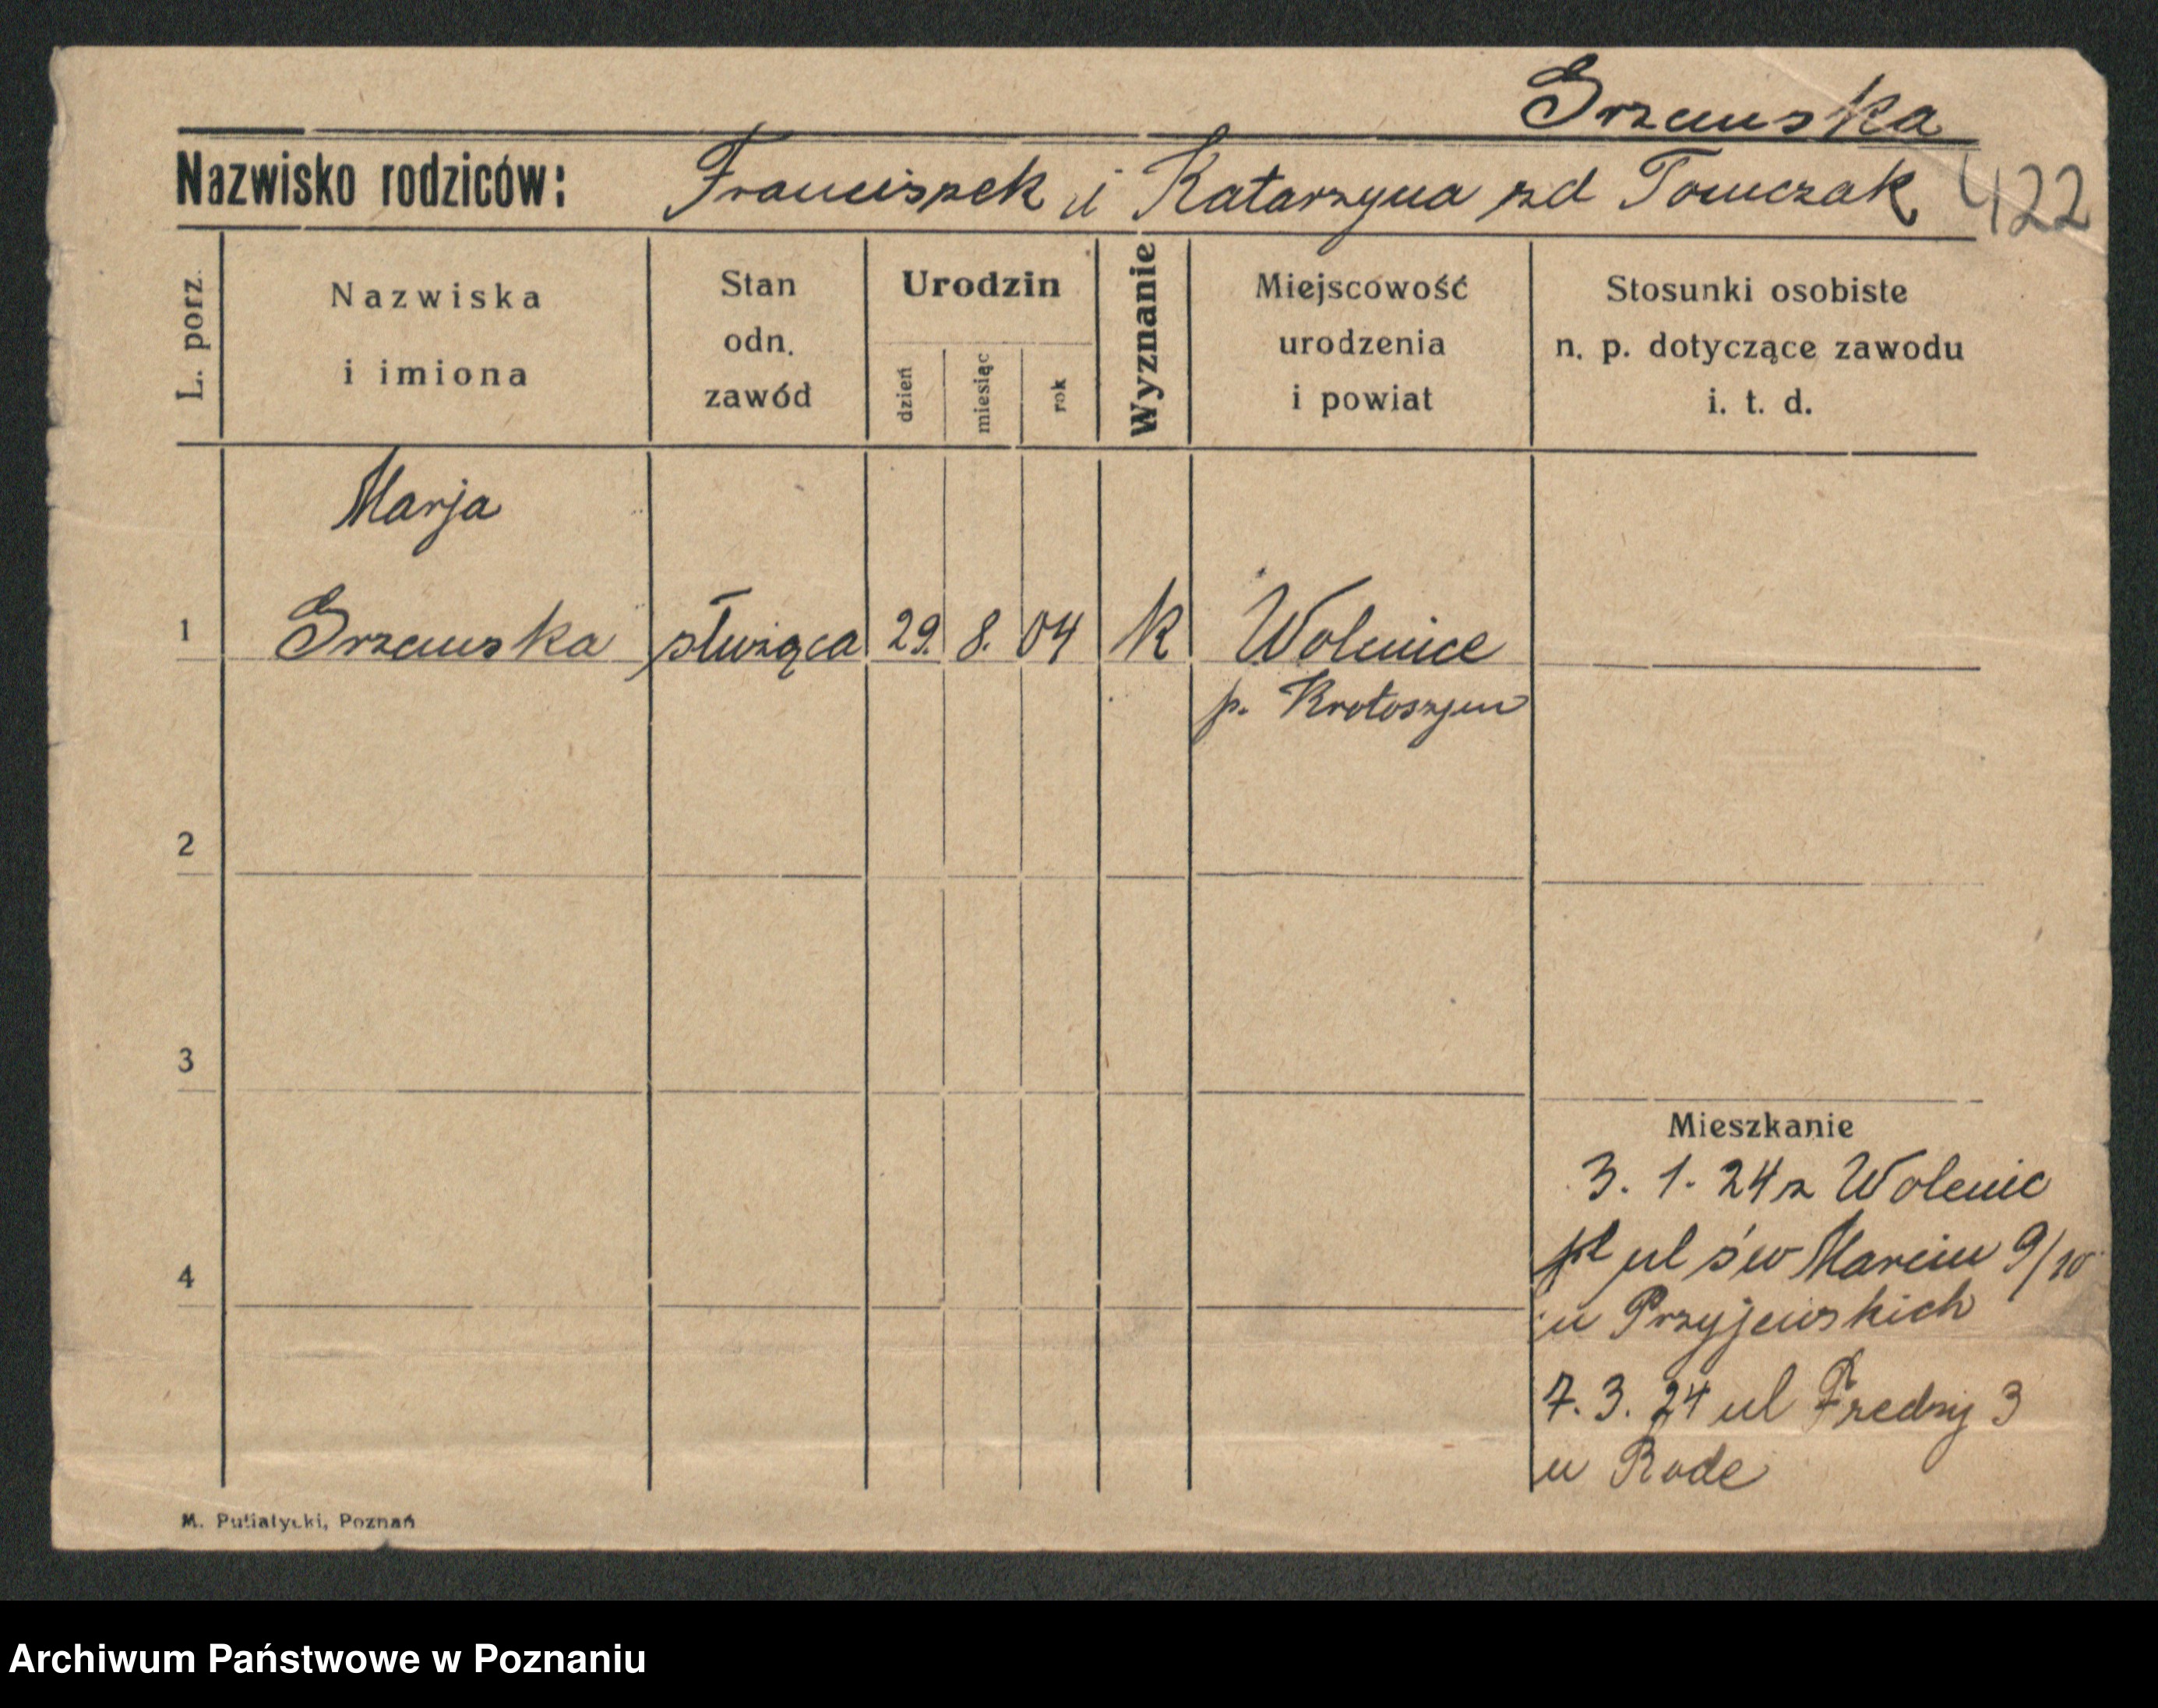 Grzemska
Nazwisko rodziców: Franciszek i Katarzyna zd Tomczak 422
L. porz.
Nazwiska
i imiona
Stan
odn.
zawód
Urodzin
dzień
miesiąc
rok
Wyznanie
Miejscowość
urodzenia
i powiat
Stosunki osobiste
n. p. dotyczące zawodu
i. t. d.
Marja
1 Grzemska służąca 29. 8. 04 k Wolenice
p. Krotoszyn
2
3
Mieszkanie
3. 1. 24 z Wolenic
pl ul św Marcin 9/10
4
u Przyjemskich
7. 3. 24 ul Fredry 3
u Rode
M. Putiatycki, Poznań
Archiwum Państwowe w Poznaniu